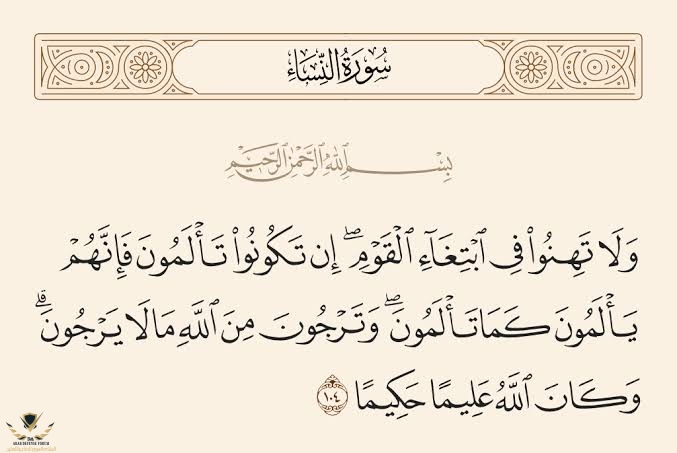 سُورَةُ النِّسَاءِ
بِسْمِ ٱللَّهِ ٱلرَّحْمَٰنِ ٱلرَّحِيمِ
وَلَا تَهِنُوا۟ فِى ٱبْتِغَآءِ ٱلْقَوْمِ ۖ إِن تَكُونُوا۟ تَأْلَمُونَ فَإِنَّهُمْ
يَأْلَمُونَ كَمَا تَأْلَمُونَ ۖ وَتَرْجُونَ مِنَ ٱللَّهِ مَا لَا يَرْجُونَ ۗ
وَكَانَ ٱللَّهُ عَلِيمًا حَكِيمًا ١٠٤
ARAB DEFENSE FORUM